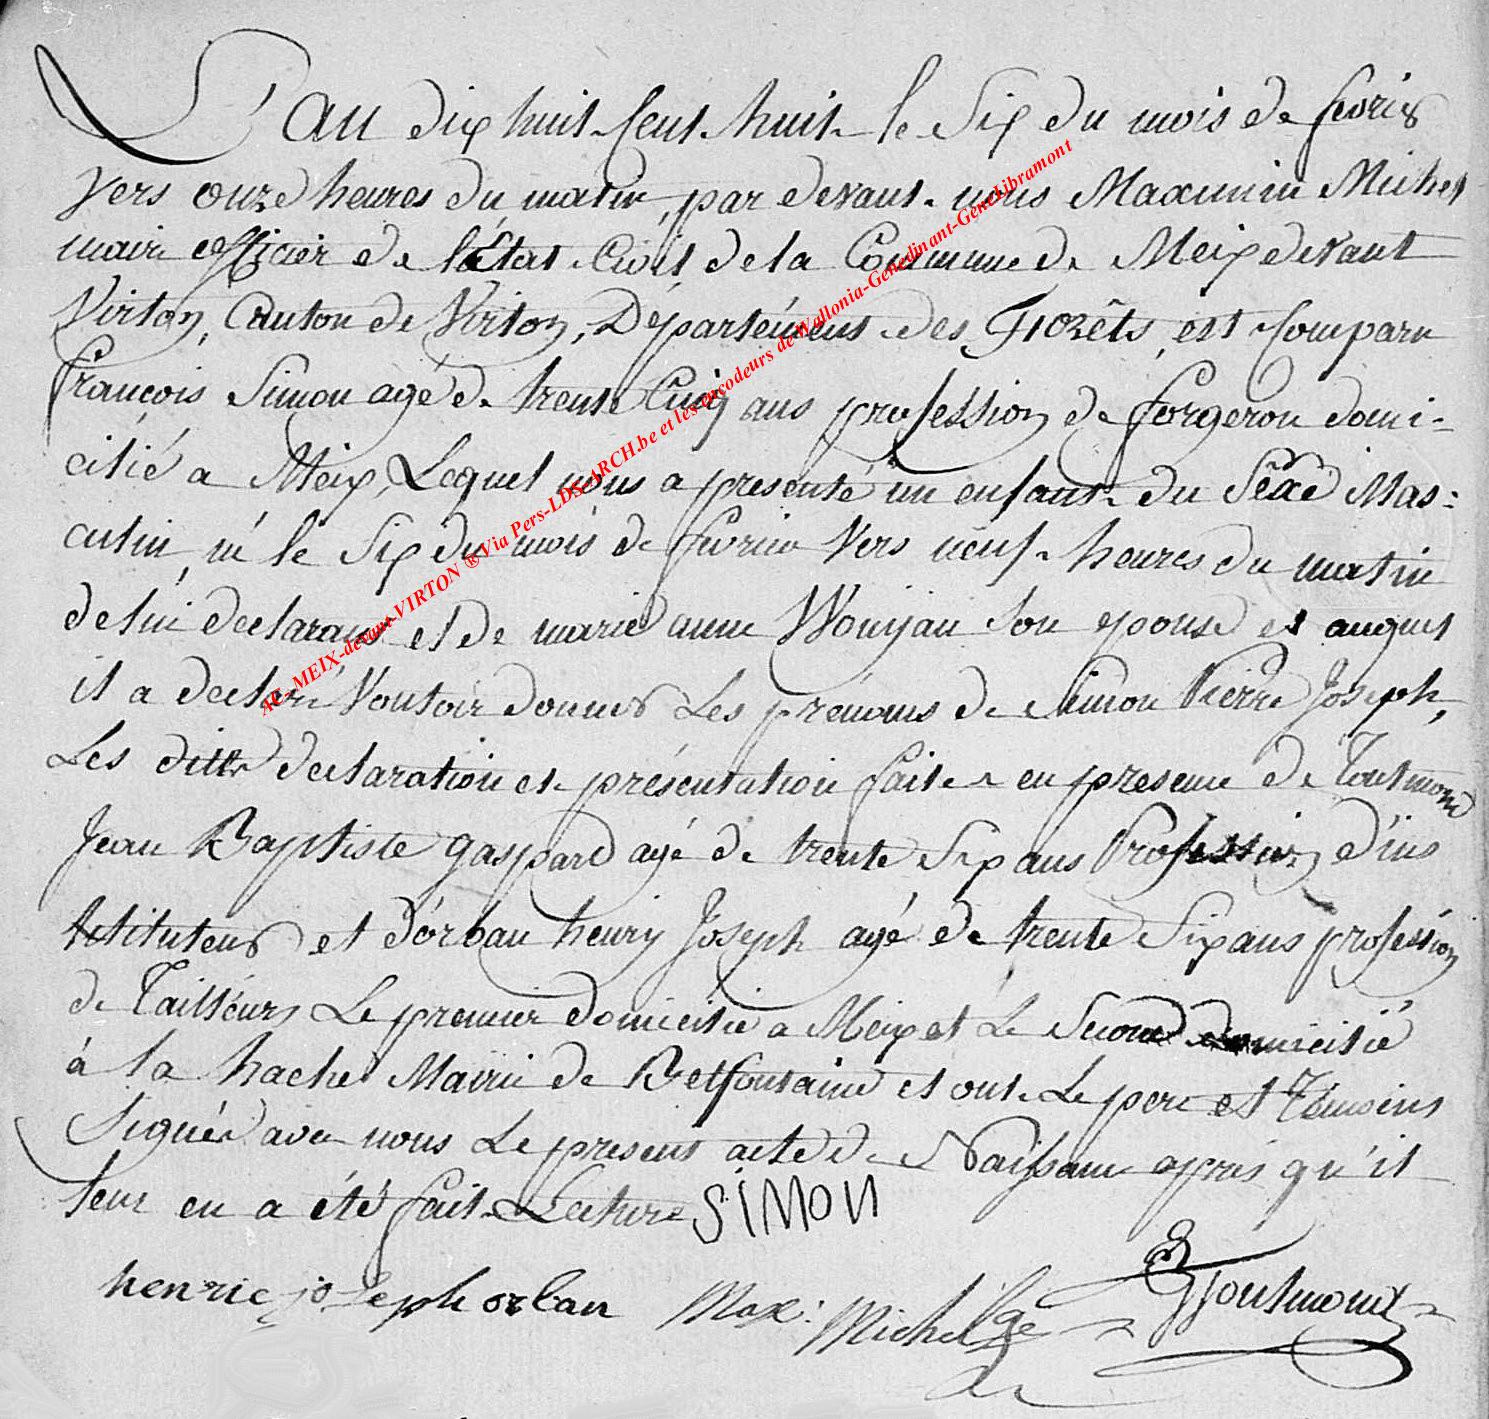 L'an dix huit Cent huit le Six du mois de fevrier
vers onze heures du matin, par devant nous Maximin Michel
maire officier de l'État Civil de la Commune de Meix devant
Virton, Canton de Virton, Département des Forêts, est Comparu
françois Simon agé de trente Cinq ans profession de forgeron domi-
cilié a Meix, Lequel nous a presenté un enfant du Sèxe Mas:
culin, né le Six du mois de fevrier vers neuf heures du matin
de lui declarant et de marie anne son epouse et auquel
il a declaré vouloir donner Les prénoms de Simon Pierre Joseph,
Les dittes declaration et présentation faites en presence de Toutmond
Jean Baptiste gaspard agé de trente Six ans Profession d'ins
tituteur et d'orban henry Joseph agé de trente Six ans profession
de Tailleur, Le premier domicilié a Meix et Le Second domicilié
à la hache Mairie de Belfontaine et ont Le pere et Témoins
Signés avec nous Le present acte de Naissance après qu'il
leur en a été fait Lecture SIMON
henric joseph orban Max: Michel JBG Toutmond
AC-MEIX-devant-VIRTON ® Via Pers-LDS-ARCH.be et les encodeurs de Wallonia-Genedinant-GeneLibramont